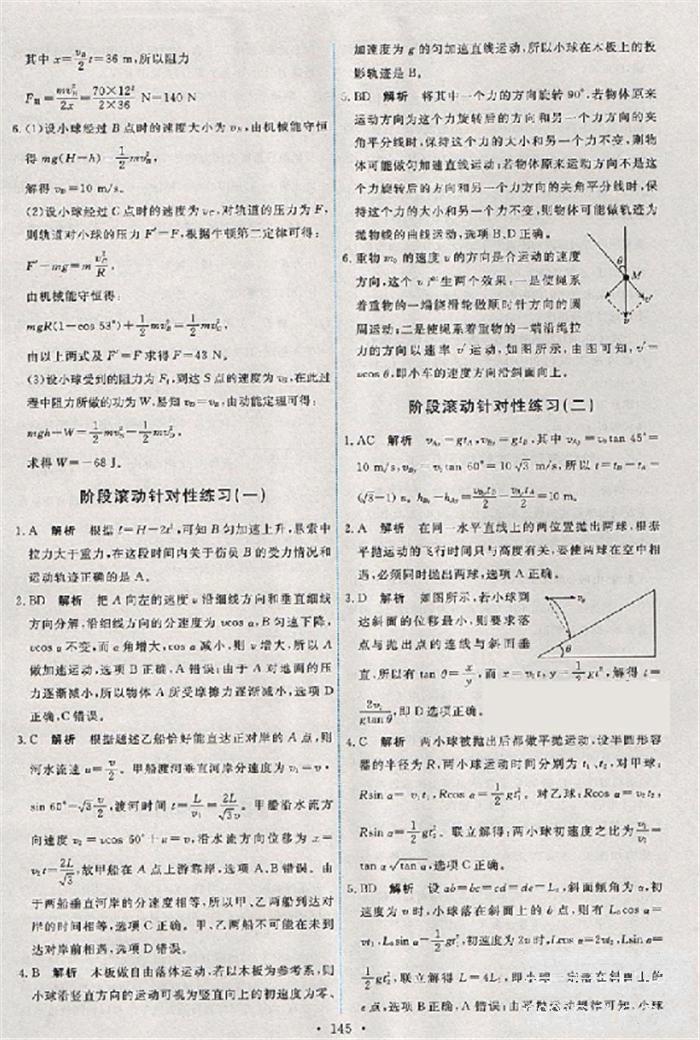 其中 x=v_B/2 t=36 m,所以阻力
F_阻=mv_B²/2x=70×12²/2×36 N=140 N
6.(1)设小球经过 B 点时的速度大小为 v_B,由机械能守恒
得 mg(H-h)=1/2mv_B²,
解得 v_B=10 m/s。
(2)设小球经过 C 点时的速度为 v_C,对轨道的压力为 F,
则轨道对小球的压力 F′=F,根据牛顿第二定律可得:
F′-mg=m v_C²/R,
由机械能守恒得:
mgR(1-cos 53°)+1/2mv_B²=1/2mv_C²,
由以上两式及 F′=F 求得 F=43 N。
(3)设小球受到的阻力为 F_f,到达 S 点的速度为 v_S,在此过
程中阻力所做的功为 W,易知 v_D=v_B,由动能定理可得:
mgh+W=1/2mv_S²-1/2mv_D²,
求得 W=-68 J。
阶段滚动针对性练习(一)
1.A 解析 根据 l=H-2t²,可知 B 匀加速上升,悬索中
拉力大于重力,在这段时间内关于伤员 B 的受力情况和
运动轨迹正确的是 A。
2.BD 解析 把 A 向左的速度 v 沿细线方向和垂直细线
方向分解,沿细线方向的分速度为 vcos α,B 匀速下降,
vcos α 不变,而 α 角增大,cos α 减小,则 v 增大,所以 A
做加速运动,选项 B 正确,A 错误;由于 A 对地面的压
力逐渐减小,所以物体 A 所受摩擦力逐渐减小,选项 D
正确,C 错误。
3.C 解析 根据题述乙船恰好能直达正对岸的 A 点,则
河水流速 u=v/2。甲船渡河垂直河岸分速度为 v₁=v·
sin 60°=√3 v/2,渡河时间 t=L/v₁=2L/√3v。甲船沿水流方
向速度 v₂=vcos 60°+u=v,沿水流方向位移为 x=
v₂t=2L/√3,故甲船在 A 点上游靠岸,选项 A、B 错误。由
于两船垂直河岸的分速度相等,所以甲、乙两船到达对
岸的时间相等,选项 C 正确。甲、乙两船不可能在未到
达对岸前相遇,选项 D 错误。
4.B 解析 木板做自由落体运动,若以木板为参考系,则
小球沿竖直方向的运动可视为竖直向上的初速度为零、
加速度为 g 的匀加速直线运动,所以小球在木板上的投
影轨迹是 B。
5.BD 解析 将其中一个力的方向旋转 90°,若物体原来
运动方向为这个力旋转后的方向和另一个力方向的夹
角平分线时,保持这个力的大小和另一个力不变,则物
体可能做匀加速直线运动;若物体原来运动方向不是这
个力旋转后的方向和另一个力方向的夹角平分线时,保
持这个力的大小和另一个力不变,则物体可能做轨迹为
抛物线的曲线运动,选项 B、D 正确。
6.重物 m₀ 的速度 v 的方向是合运动的速度
方向,这个 v 产生两个效果:一是使绳系
着重物的一端绕滑轮做顺时针方向的圆
周运动;二是使绳系着重物的一端沿绳拉
力的方向以速率 v′ 运动,如图所示,由图可知,v′=
vcos θ,即小车的速度方向沿斜面向上。
θ
M
v′
v
阶段滚动针对性练习(二)
1.AC 解析 v_Ay=gt_A,v_By=gt_B,其中 v_Ay=v₀tan 45°=
10 m/s,v_By=v₀tan 60°=10√3 m/s,所以 t=t_B-t_A=
(√3-1) s。h_By-h_Ay=v_By t_B/2-v_Ay t_A/2=10 m。
2.A 解析 在同一水平直线上的两位置抛出两球,根据
平抛运动的飞行时间只与高度有关,要使两球在空中相
遇,必须同时抛出两球,选项 A 正确。
3.D 解析 如图所示,若小球到
达斜面的位移最小,则要求落
点与抛出点的连线与斜面垂
直,所以有 tan θ=x/y,而 x=v₀t,y=1/2gt²,解得 t=
2v₀/gtan θ,即 D 选项正确。
v₀
θ
4.C 解析 两小球被抛出后都做平抛运动,设半圆形容
器的半径为 R,两小球运动时间分别为 t₁、t₂,对甲球:
Rsin α=v₁t₁,Rcos α=1/2gt₁²。对乙球:Rcos α=v₂t₂,
Rsin α=1/2gt₂²。联立解得:两小球初速度之比为v₁/v₂=
tan α√tan α,选项 C 正确。
5.BD 解析 设 ab=bc=cd=de=L₀,斜面倾角为 α,初
速度为 v 时,小球落在斜面上的 b 点,则有 L₀cos α=
vt₁,L₀sin α=1/2gt₁²,初速度为 2v 时,Lcos α=2vt₂,Lsin α=
1/2gt₂²,联立解得 L=4L₀,即小球一定落在斜面上的
e 点,选项 B 正确,A 错误;由平抛运动规律可知,小球
145